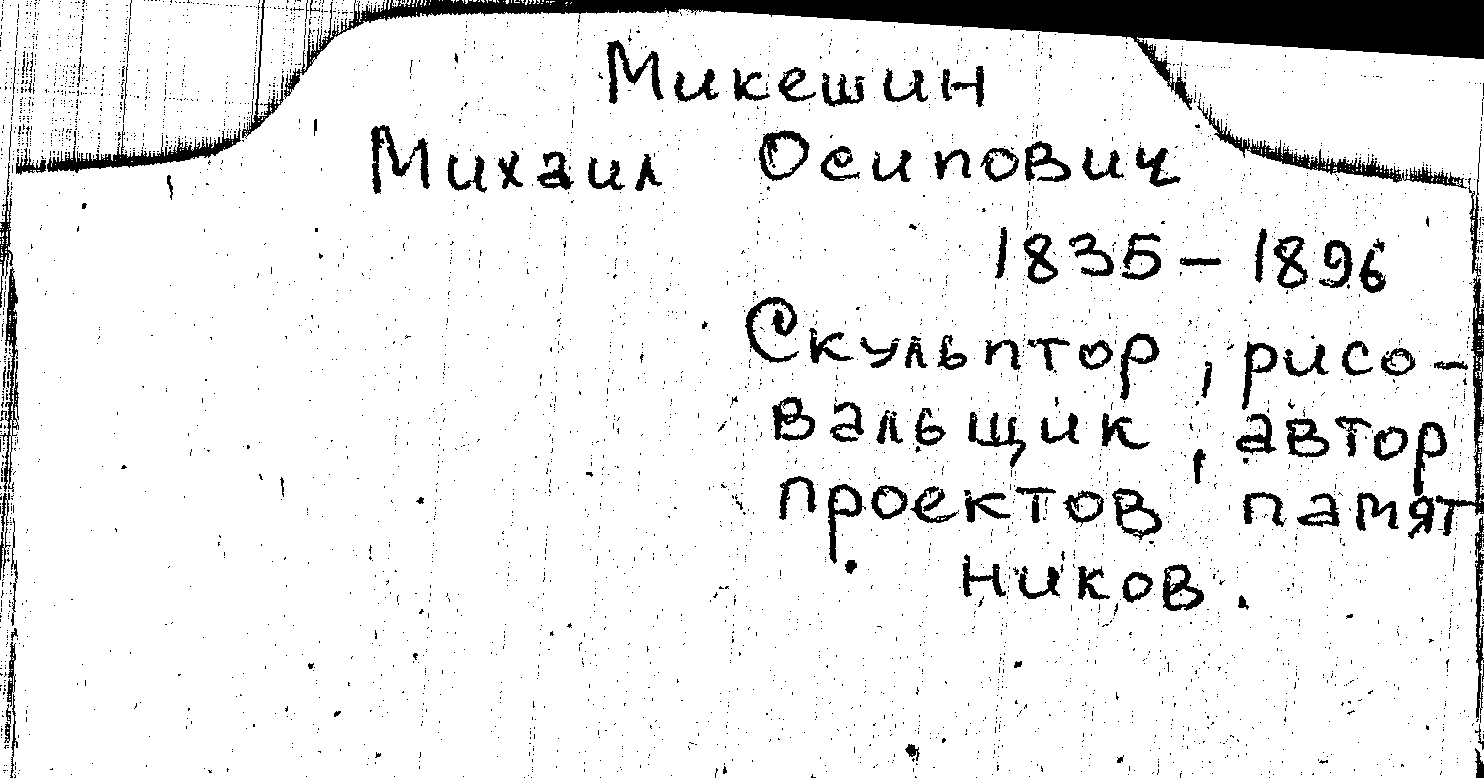 Микешин
Михаил Осипович
1835 – 1896
Скульптор, рисо-
вальщик, автор
проектов памят
ников.